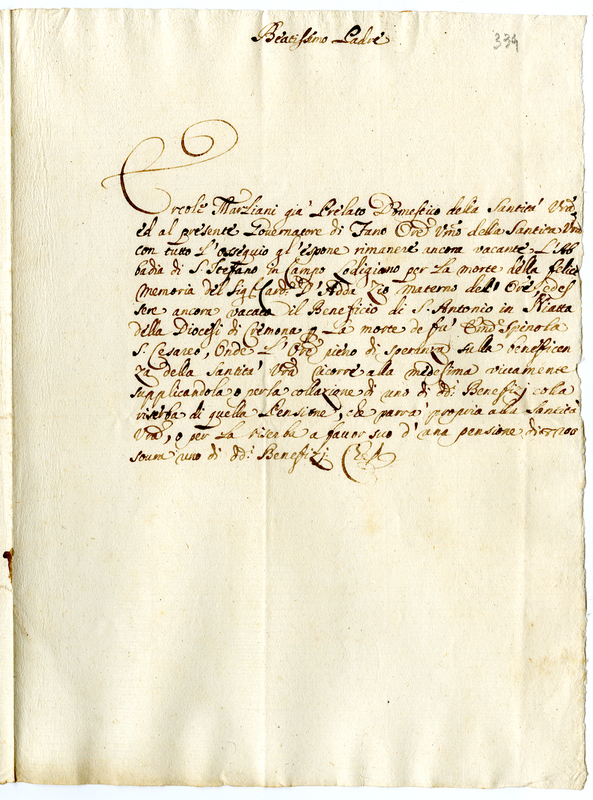 Beatissimo Padre
334
Ercole Marliani già Prelato Domestico della Santità Vrã
ed al presente Governatore di Fano Orẽ Vm̃o della Santità Vrã
con tutto l'ossequio gl'espone rimanere ancora vacante l'Ab
badia di S. Stefano in Campo Lodigiano per la morte della felice
memoria del Sig. Card. D'Adda Zio materno dell'Orẽ ed es
sere ancora vacato il Beneficio di S. Antonio in
della Diocesi di Cremona p la morte de fù Spinola
S. Cesareo, Onde l'Orẽ pieno di speranza sulla beneficen
za della Santità Vrã ricorre alla medesima vivamente
supplicandola o per la collazione di uno di dd. Benefizj colla
riserba di quella Pensione, che parrà propria alla Santità
Vrã, o per la riserba a favor suo d'una pensione di
soura uno di dd. Benefizj. Che